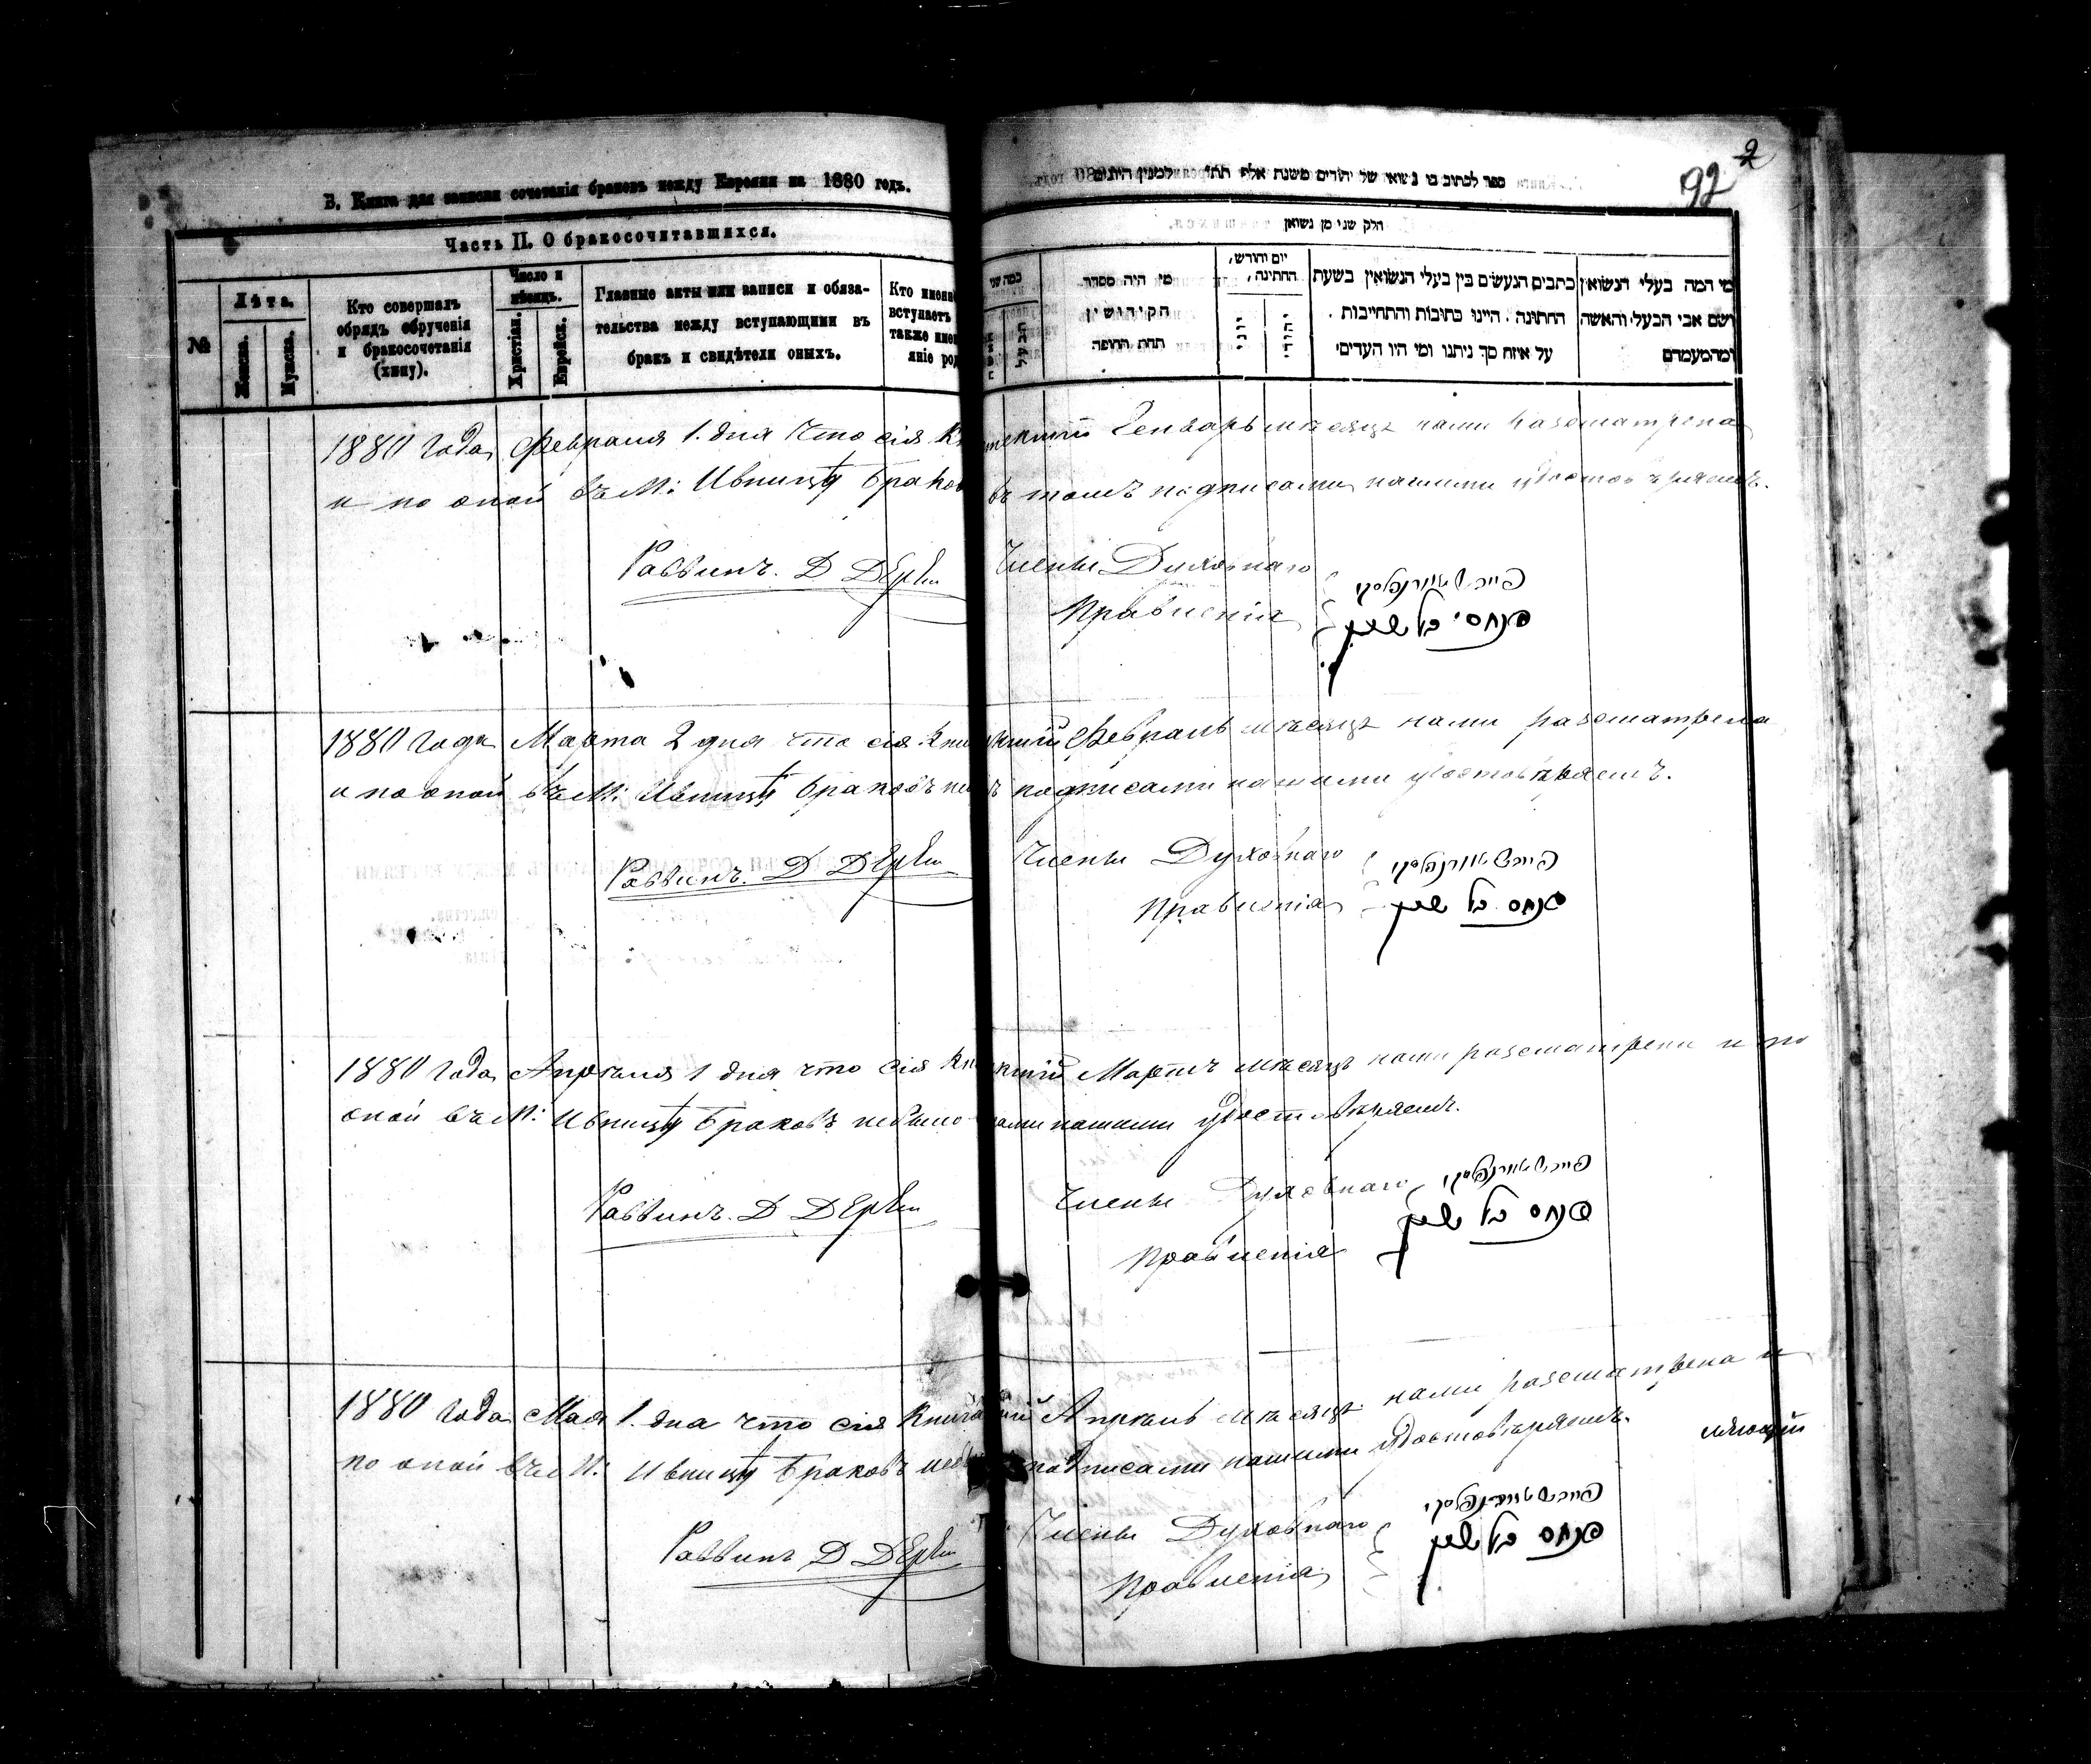 В. Книга для записки сочетанія браковъ между Евреями на 1880 годъ.
Часть II. О бракосочитавшихся.
№
Лѣта.
Женска.
Мужска.
Кто совершалъ
обрядъ обрученія
и бракосочетанія
(хипу).
Число и
мѣсяцъ.
Христіан.
Еврейск.
Главные акты или записи и обяза-
тельства между вступающими въ
бракъ и свидѣтели оныхъ.
Кто имен
вступаетъ
также име
яніе род
92
2
ספר לכתוב בו נשואי של יהודים משנת אלף תת״ למנין היונים
חלק שני מן נשואין
מי היה מסדר
הקידושין
תחת החופה
יום וחודש,
החתונה,
יוני
יהודי
כתבים הנעשים בין בעלי הנשואין בשעת
החתונה. היינו כתובות והתחייבות.
על איזה סך ניתנו ומי היו העדים
מי המה בעלי הנשואין
ושם אבי הבעל והאשה
ומהמעמדם
1880 года Февраля 1. дня что сія Генварь мѣсяцъ нами разсматрена
и по оной въ М: Ивницѣ браков въ томъ подписами нашими удостовѣряемъ.
Раввинъ. Д
Члены Духовнаго
Правленія
פנחס
1880 года Марта 2 дня что сія Февраль мѣсяцъ нами разсматрена
и по оной въ М: Ивницѣ браковъ подписами нашими удостовѣряемъ.
Раввинъ. Д
Члены Духовнаго
Правленія
פנחס
1880 года Апрѣля 1 дня что сія Мартъ мѣсяцъ нами разсматрена и по
оной въ М: Ивницѣ браковъ небыло нашими удостовѣряемъ.
Раввинъ. Д
Члены Духовнаго
Правленія
פנחס
1880 года Мая 1. дня что сія Книга Апрѣль мѣсяцъ нами разсматрена и
по оной въ М: Ивницѣ браковъ подписами нашими удостовѣряемъ.
Раввинъ Д
Члены Духовнаго
Правленія
פנחס